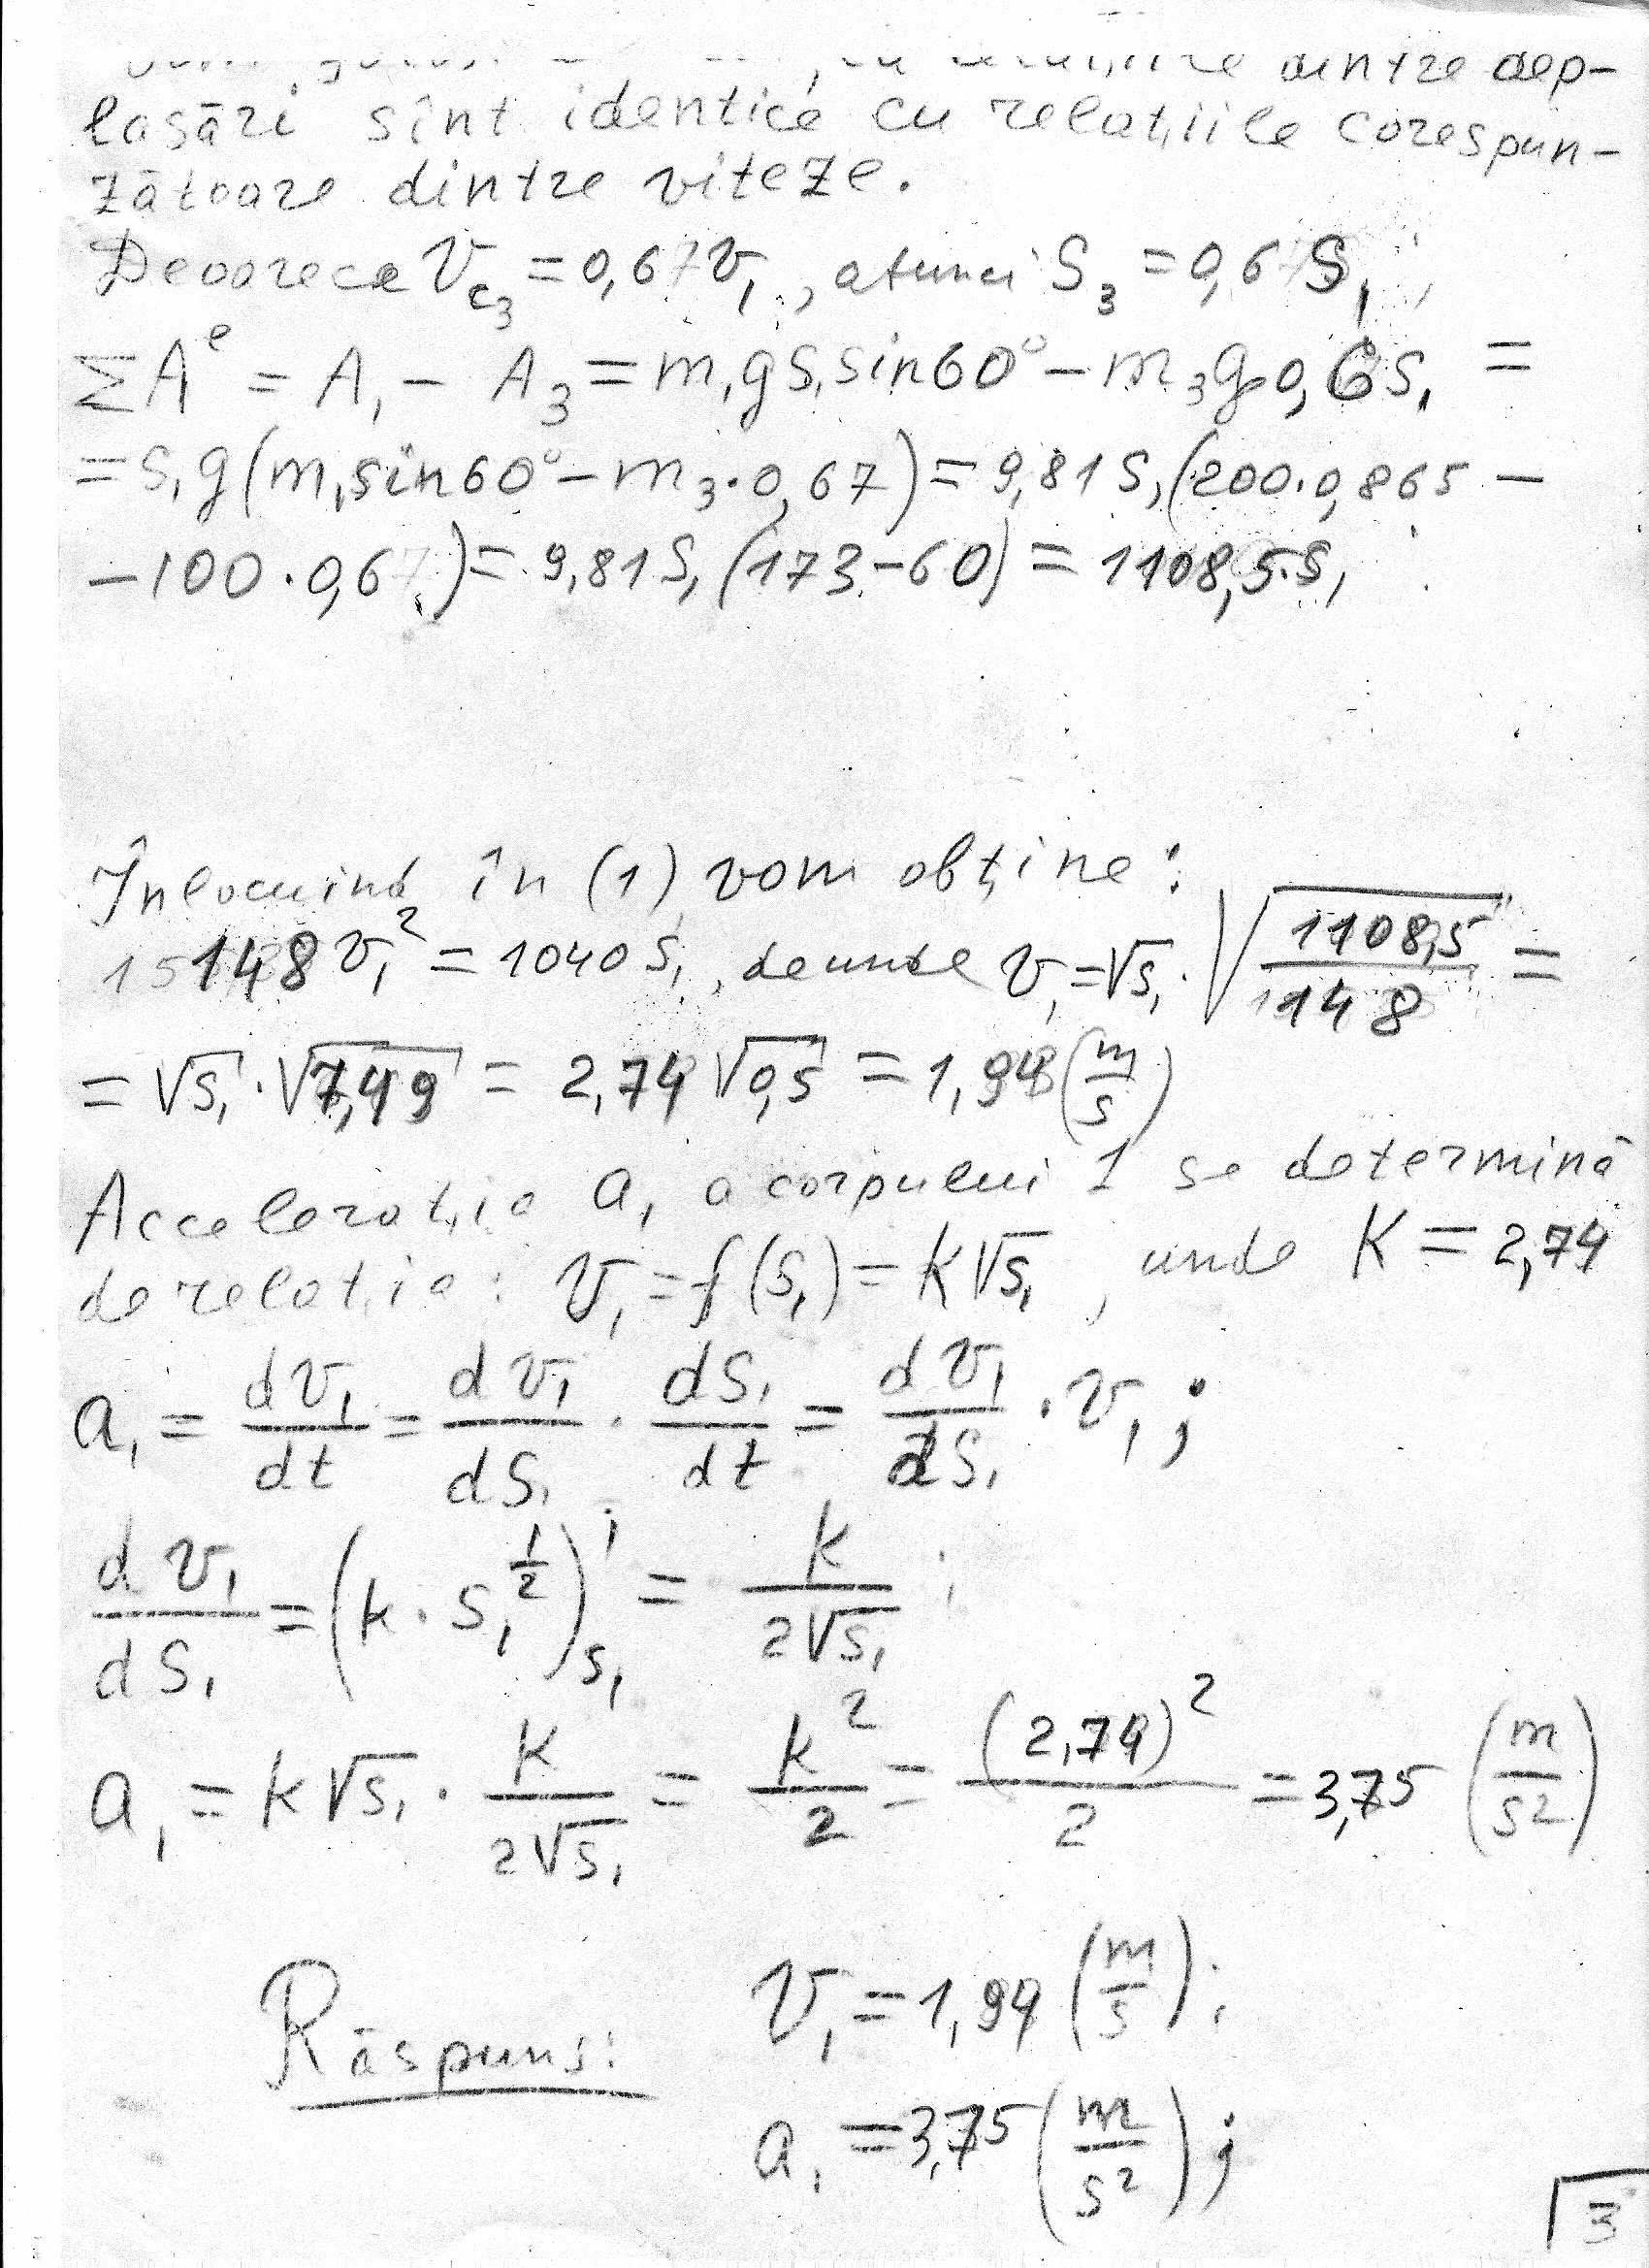 dintre dep-
lasări sînt identice cu relațiile corespun-
zătoare dintre viteze.
Deoarece V_c3 = 0,67 v₁, atunci S₃ = 0,6 S₁;
ΣAᵉ = A₁ - A₃ = m₁gS₁sin60° - m₃g0,6S₁ =
= S₁g(m₁sin60° - m₃·0,67) = 9,81S₁(200·0,865 -
-100·0,67) = 9,81S₁(173-60) = 1108,5·S₁
Înlocuind în (1) vom obține:
148v₁² = 1040S₁, de unde v₁ = √S₁·√(1108,5/148) =
= √S₁·√7,49 = 2,74√0,5 = 1,94 (m/s)
Accelerația a₁ a corpului 1 se determină
de relația: v₁ = f(S₁) = k√S₁, unde K = 2,74
a₁ = dv₁/dt = dv₁/dS₁ · dS₁/dt = dv₁/dS₁ · v₁;
dv₁/dS₁ = (k·S₁^(1/2))'_S₁ = k/(2√S₁);
a₁ = k√S₁ · k/(2√S₁) = k²/2 = (2,74)²/2 = 3,75 (m/s²)
Răspuns: v₁ = 1,94 (m/s);
a₁ = 3,75 (m/s²);
3